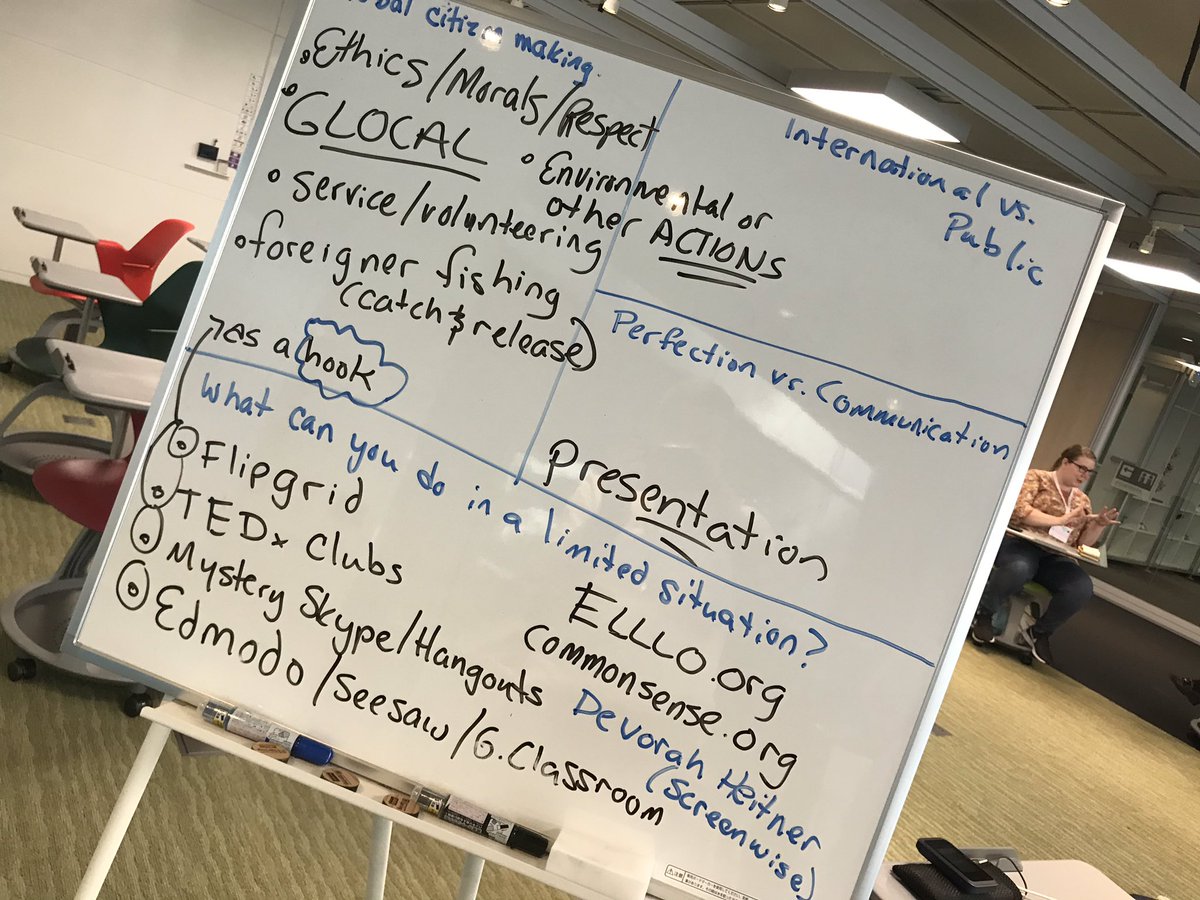 obal citizen making.
• Ethics/Morals/Respect
• GLOCAL
• Environmental or
other ACTIONS
• service/volunteering
• foreigner fishing
(catch & release)
→ as a hook
International vs.
Public
Perfection vs. Communication
presentation
What can you do in a limited situation?
• Flipgrid
• TEDx Clubs
• Mystery Skype/Hangouts
• Edmodo/Seesaw/G.Classroom
ELLLO.org
commonsense.org
Devorah Heitner
(Screenwise)